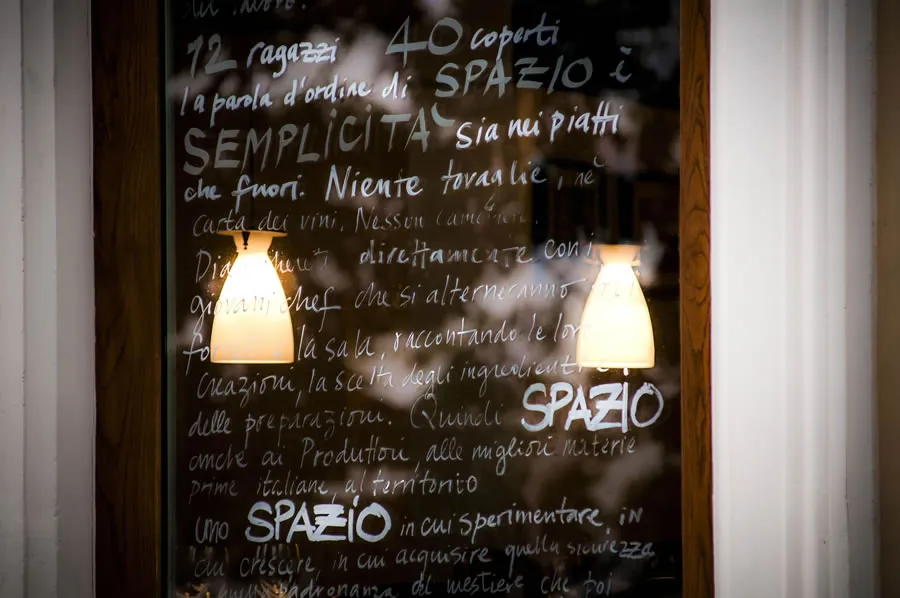 del lavoro.
12 ragazzi 40 coperti
la parola d'ordine di SPAZIO è
SEMPLICITA' sia nei piatti
che fuori. Niente tovaglie, nè
carta dei vini. Nessun
direttamente con i
giovani chef che si alterneranno
la sala, raccontando le loro
creazioni, la scelta degli ingredienti
delle preparazioni. Quindi SPAZIO
anche ai Produttori, alle migliori materie
prime italiane, al territorio
uno SPAZIO in cui sperimentare, in
cui crescere, in cui acquisire quella sicurezza
padronanza del mestiere che poi